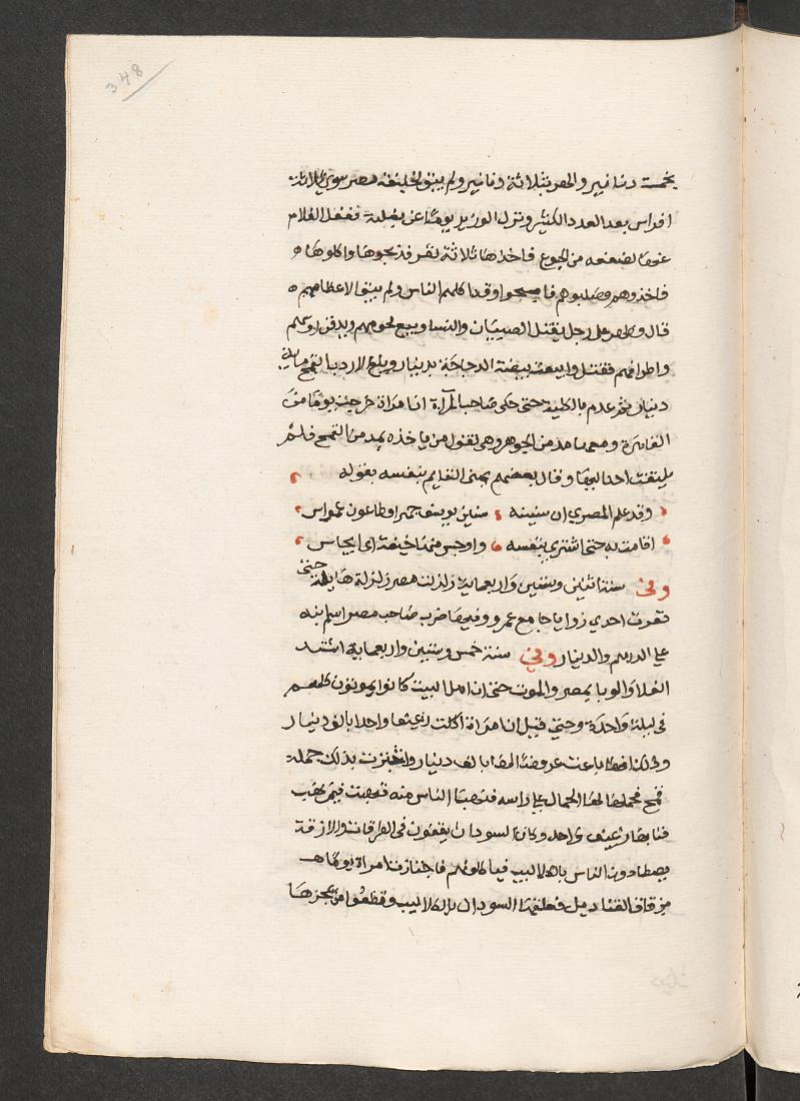 348
بخمسة دنانير والهر بثلاثة دنانير ولم يبق لخليفة مصر سوى ثلاثة
افراس بعد العدد الكثير ونزل الوزير يوما عن بغلته فغفل الغلام
عنها لضعفه من الجوع فاخذها ثلاثة نفر فذبحوها واكلوها
فاخذوهم وصلبوهم فاصبحوا وقد اكلهم الناس ولم يبق الا عظامهم
قال وظهر على رجل يقتل الصبيان والنسا ويبيع لحومهم ويدفن روسهم
واطرافهم فقتل وابيعت بيضة الدجاجة بدينار وبلغ الاردب القمح مائة
دينار ثم عدم بالكلية حتى حكى صاحب المرآة ان امراة خرجت يوما من
القاهرة ومعها مد من الجوهر وهى تقول من ياخذه بمد من القمح فلم
يلتفت احد اليها وقال بعضهم يهنى القايم بنفسه بقوله
وقد علم المصري ان سنينه سنين يوسف حصرا وطاعون عمواس
اقامت به حتى اشترى بنفسه واوجس منها خيفة اى ايجاس
وفي سنة اثنين وستين واربعماية زلزلت مصر زلزلة هايلة حتى
نفرت احدي زوايا جامع عمرو وفيها ضرب صاحب مصر اسم ابنه
على الدرهم والدينار وفي سنة خمس وستين واربعماية اشتد
الغلا والوبا بمصر والموت حتى ان اهل البيت كانوا يموتون كلهم
فى ليلة واحدة وحتى قيل ان امراة اكلت رغيفا واحدا بالف دينار
وذلك انها باعت عروضا لها بالف دينار واشترت بذلك جملة
قمح فحملها لها الحمال على راسه فنهبها الناس منه فنهبت فيمن نهب
فنابها رغيف واحد وكان السودان يقفون فى الطرقات والازقة
يصطادون الناس بالكلاليب فياكلونهم فاجتازت امراة يوما
من زقاق القناديل فعلقها السودان بالكلاليب وقطعوا من عجزها